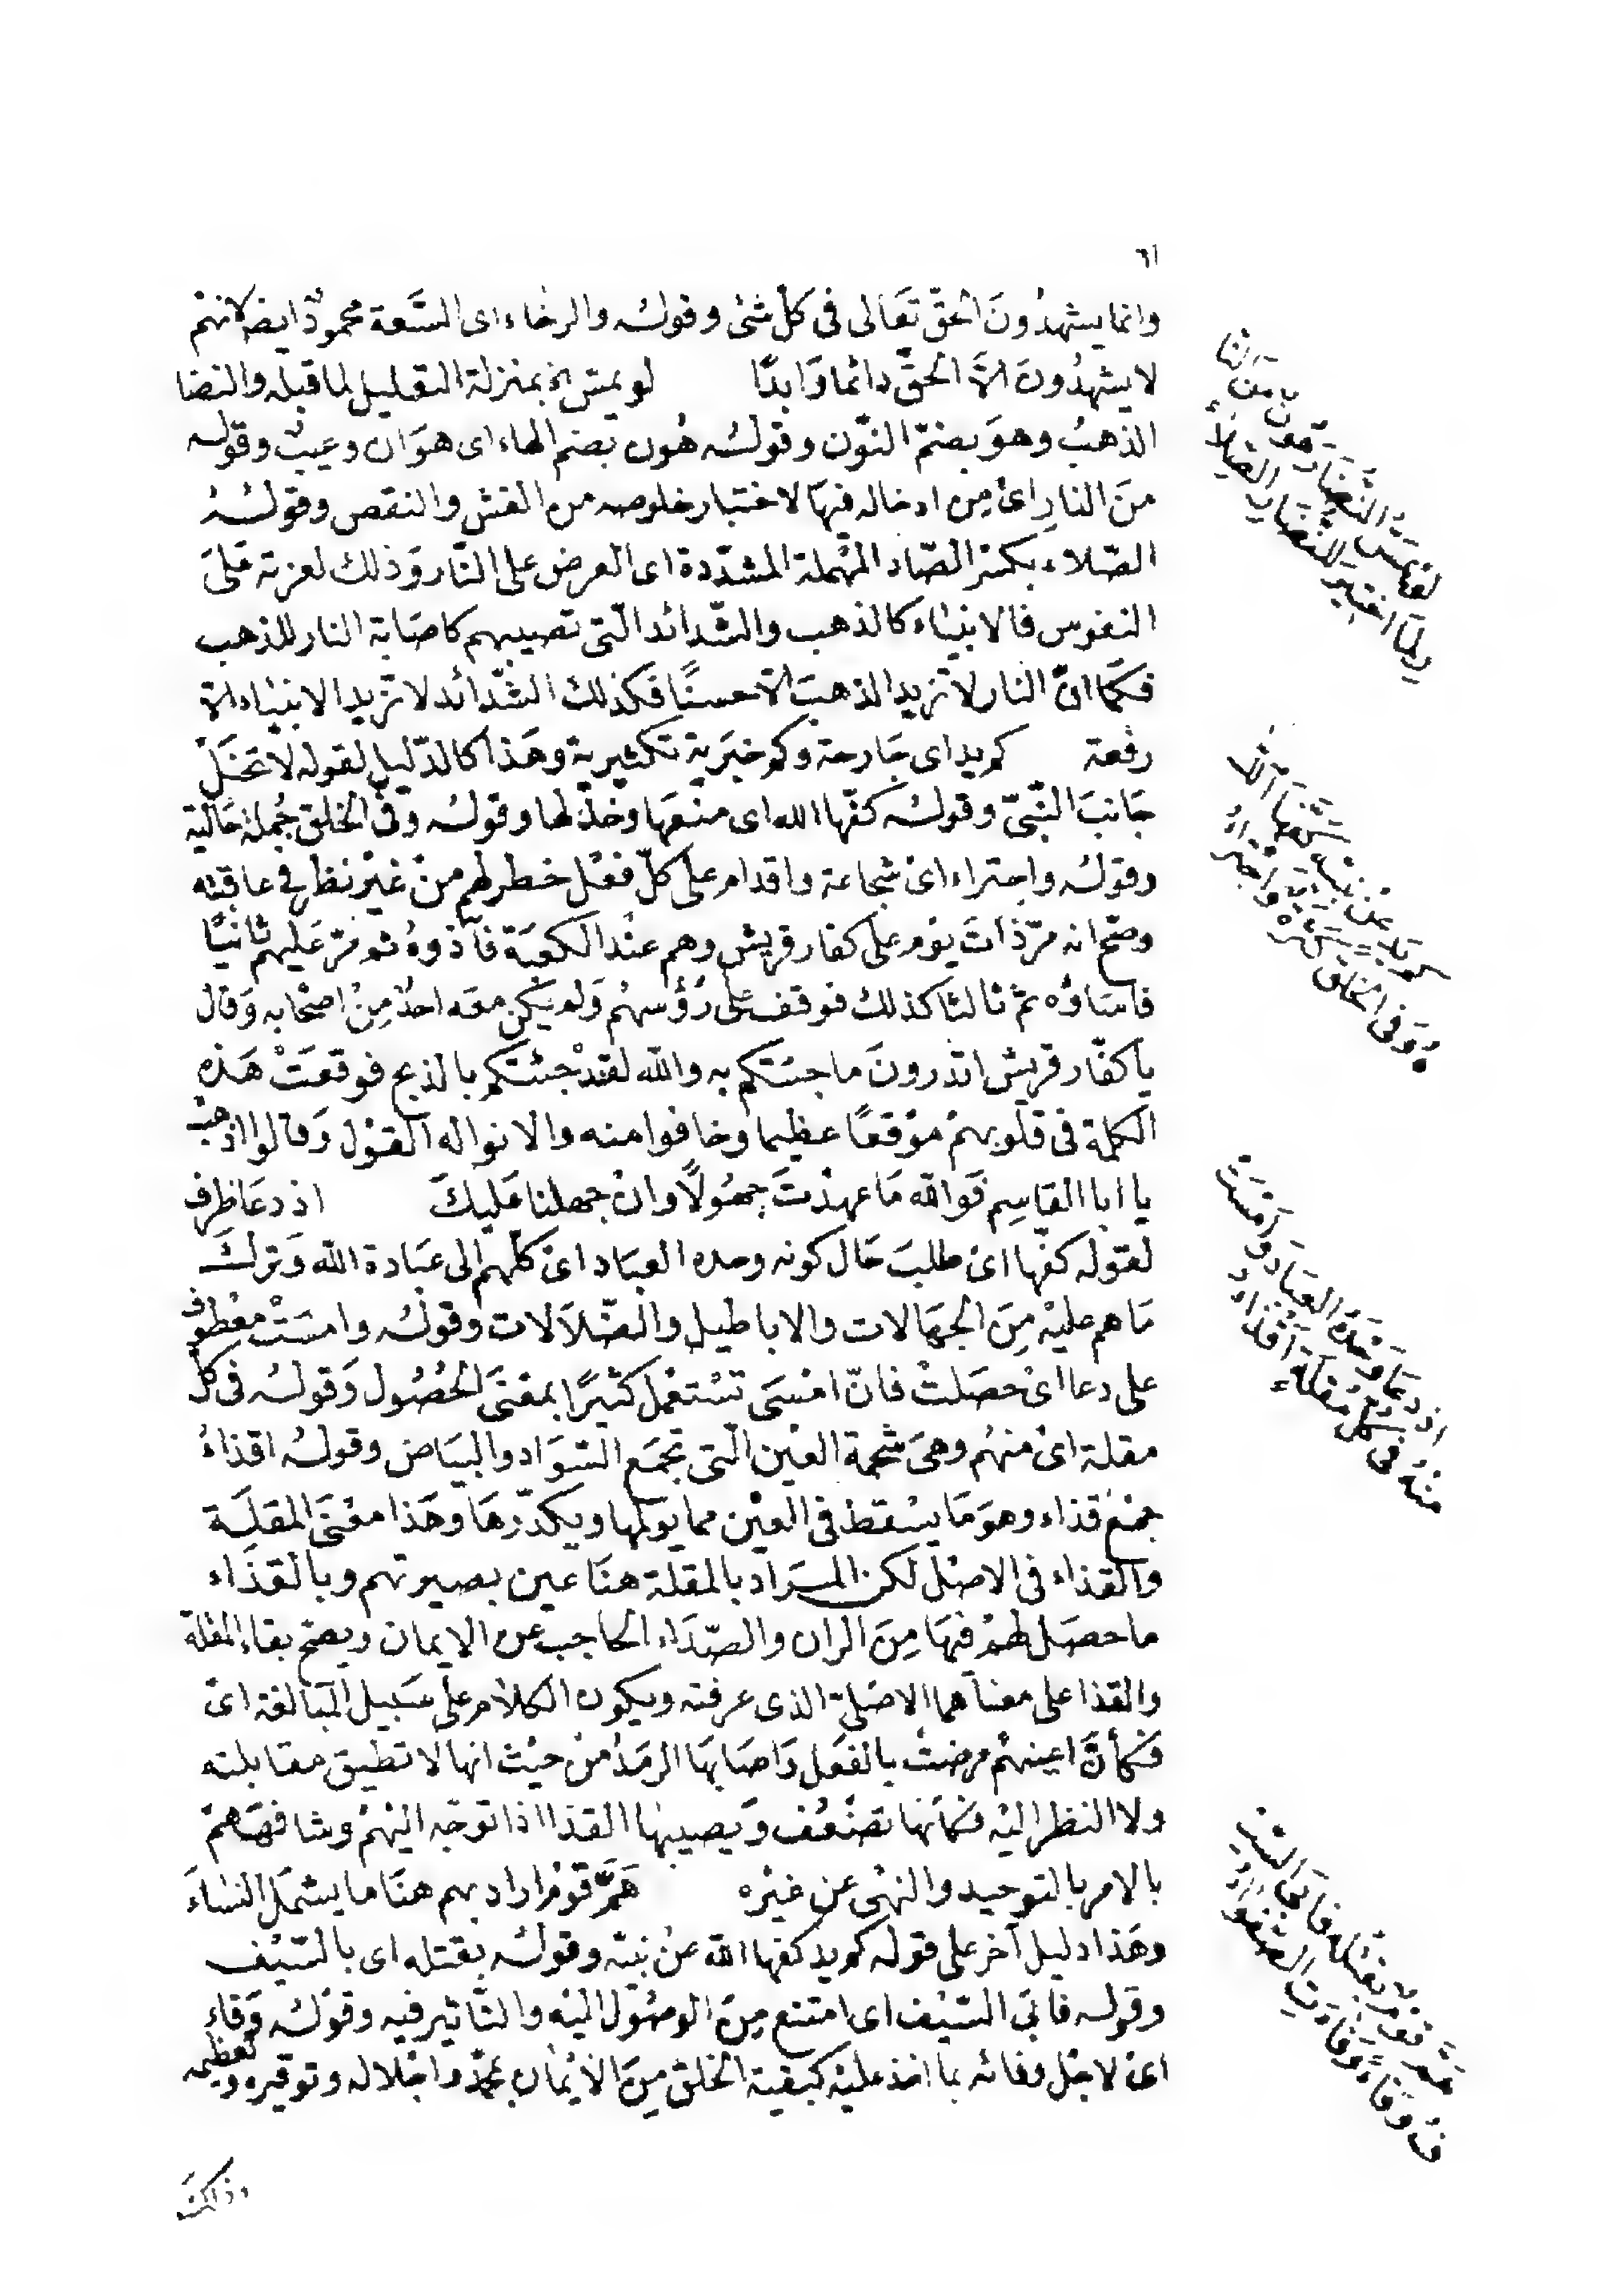 ٦١
وانما يشهدُونَ الحقّ تَعَالى فى كلّ شئ وقولُـه والرخاء اى السَّعة محمودٌ ايضا لانهمْ
لا يشهدُونَ الاَّ الحقَّ دائما وَابدًا لو يمس الخ بمنزلة التعليل لما قبله والنضا
الذهبُ وهوَ بضمّ النّون وقولُـه هُون بضم الهاء اى هوَان وعيبٌ وقوله
منَ النارِ اىْ مِن ادخاله فيهَا لاختبار خلوصه من الغش والنقص وقولُـهُ
الصّلاء بكسْر الصّاد المهْملة المشدّدة اى العرض على النَّار وَذلك لعزته عَلىَ
النفوس فالانبيَاء كالذهب والشّدائد الّتى تصيبهم كاصَابة النار للذهب
فكمَا انَّ النار لا تزيد الذهبَ الاّ حسنًا فكذلك الشّدائد لا تزيد الانبيَاء الاّ
رفعة كم يد اى جَارحة وكم خبَرية تكثيرية وهَذا كالدّليل لقوله لا تخَلْ
جَانبَ النّبىّ وقولُـه كفّها الله اى منعَها وخذلها وقولُـه وفى الخلق جُملة حَالية
وقولُـه واجتراء اىْ شجاعة واقدام على كلّ فعْل خطر لهم منْ غيْر نظر فى عاقبته
وصَحّ انه مرّ ذاتَ يوْم على كفار قريش وهم عنْد الكعبَة فآذوهُ ثم مرّ عَليهم ثانيًا
فاسَاؤُه ثمّ ثالثا كذلك فوقف على رُؤُسهمْ وَلم يكن معَه احدٌ مِنْ اصْحَابه وَقال
يا كفّار قريش اتدرونَ ما جئتكم به والله لقدْ جئتكم بالذبح فوقعَتْ هَذه
الكلمة فى قلوبهمْ موْقعًا عظيما وخافوا منه والانوا له القوْل وَقالوا اذهبْ
يا ابا القاسِم فَوالله مَا عهدْتَ جهُولاً وانْ جهلنا عَليكَ اذ دعَا ظرف
لقوله كفّها اىْ طلبَ حَال كونه وحده العبَاد اىْ كلّهم الى عبَادة الله وَتركَ
مَا هم عليْه مِنَ الجهَالات والاباطيل والضّلاَلات وقولُـه وامسَتْ معْطوف
على دعا اىْ حصَلتْ فانّ امْسَى تسْتعْمل كثيْرًا بمعْنىَ الحُصُول وَقولُـه فى كلّ
مقلة اىْ منهُم وهىَ شحمة العيْن الّتى تجمَع السّوَاد والبيَاض وقولُـه اقذاءُ
جمْعُ قذاء وهوَ مَا يسْقط فى العيْن مما يولمها ويكدّرهَا وهَذا معْنىَ المقلَة
والقذاء فى الاصْل لكن المـرَاد بالمقلة هنَا عين بصيرتهم وبالقذَاء
ما حصَل لهمْ فيهَا مِنَ الران والصّدَاء الحاجب عن الايمان ويصحّ بقاء المقلة
والقذا على معنَاهما الاصْلىّ الذى عرفته ويكون الكلام على سَبيل المبَالغة اىْ
فكأنَّ اعينهمْ مرضتْ بالفعَل وَاصَابهَا الرمَدُ منْ حيْث انها لا تطيق مقابلته
ولا النظر اليْه فكأنها تضْعُف وَيصيبهَا القذا اذا توجّه اليْهمْ وشافهَهمْ
بالامر بالتوحيد والنهْى عن غيْره هَمَّ قوْم اراد بهم هنَا ما يشمَل النسَاءَ
وهَذا دليل آخر على قوله كم يد كفها الله عنْ نبيّه وقولُـه بقتله اى بالسّيْف
وقولُـه فابَى السّيْف اى امتنع مِنَ الوصُول اليْه والتَّاثير فيه وقولُـه وَفاء
اىْ لاجْل وفائه بما اخذ عليْه كبقية الخلق مِنَ الاَيْمان بمحمّد واجْلاله وتوقيره وتعظيمه
وذاكَ
لو يمَسّ النّضَارَ هُونٌ مِنَ النا
رِ لَما اختيرَ للنُّضَارِ الصِّلاَءُ
كم يَدٍ عَنْ نَبيّهِ كَفّهَا اللّٰـ
ـهُ وَفى الخَلقِ كَثْرَةٌ واجْتِرَاءُ
اذ دعَا وَحْدَهُ العِبَادَ وَامْسَتْ
مِنْهُ فى كُلِّ مُقلَةٍ اَقْذَاءُ
هَمَّ قَومٌ بقَتْلِه فابَى السَّيـ
ـفُ وَفاءً وَفاءَتِ الصّفْوَاءُ